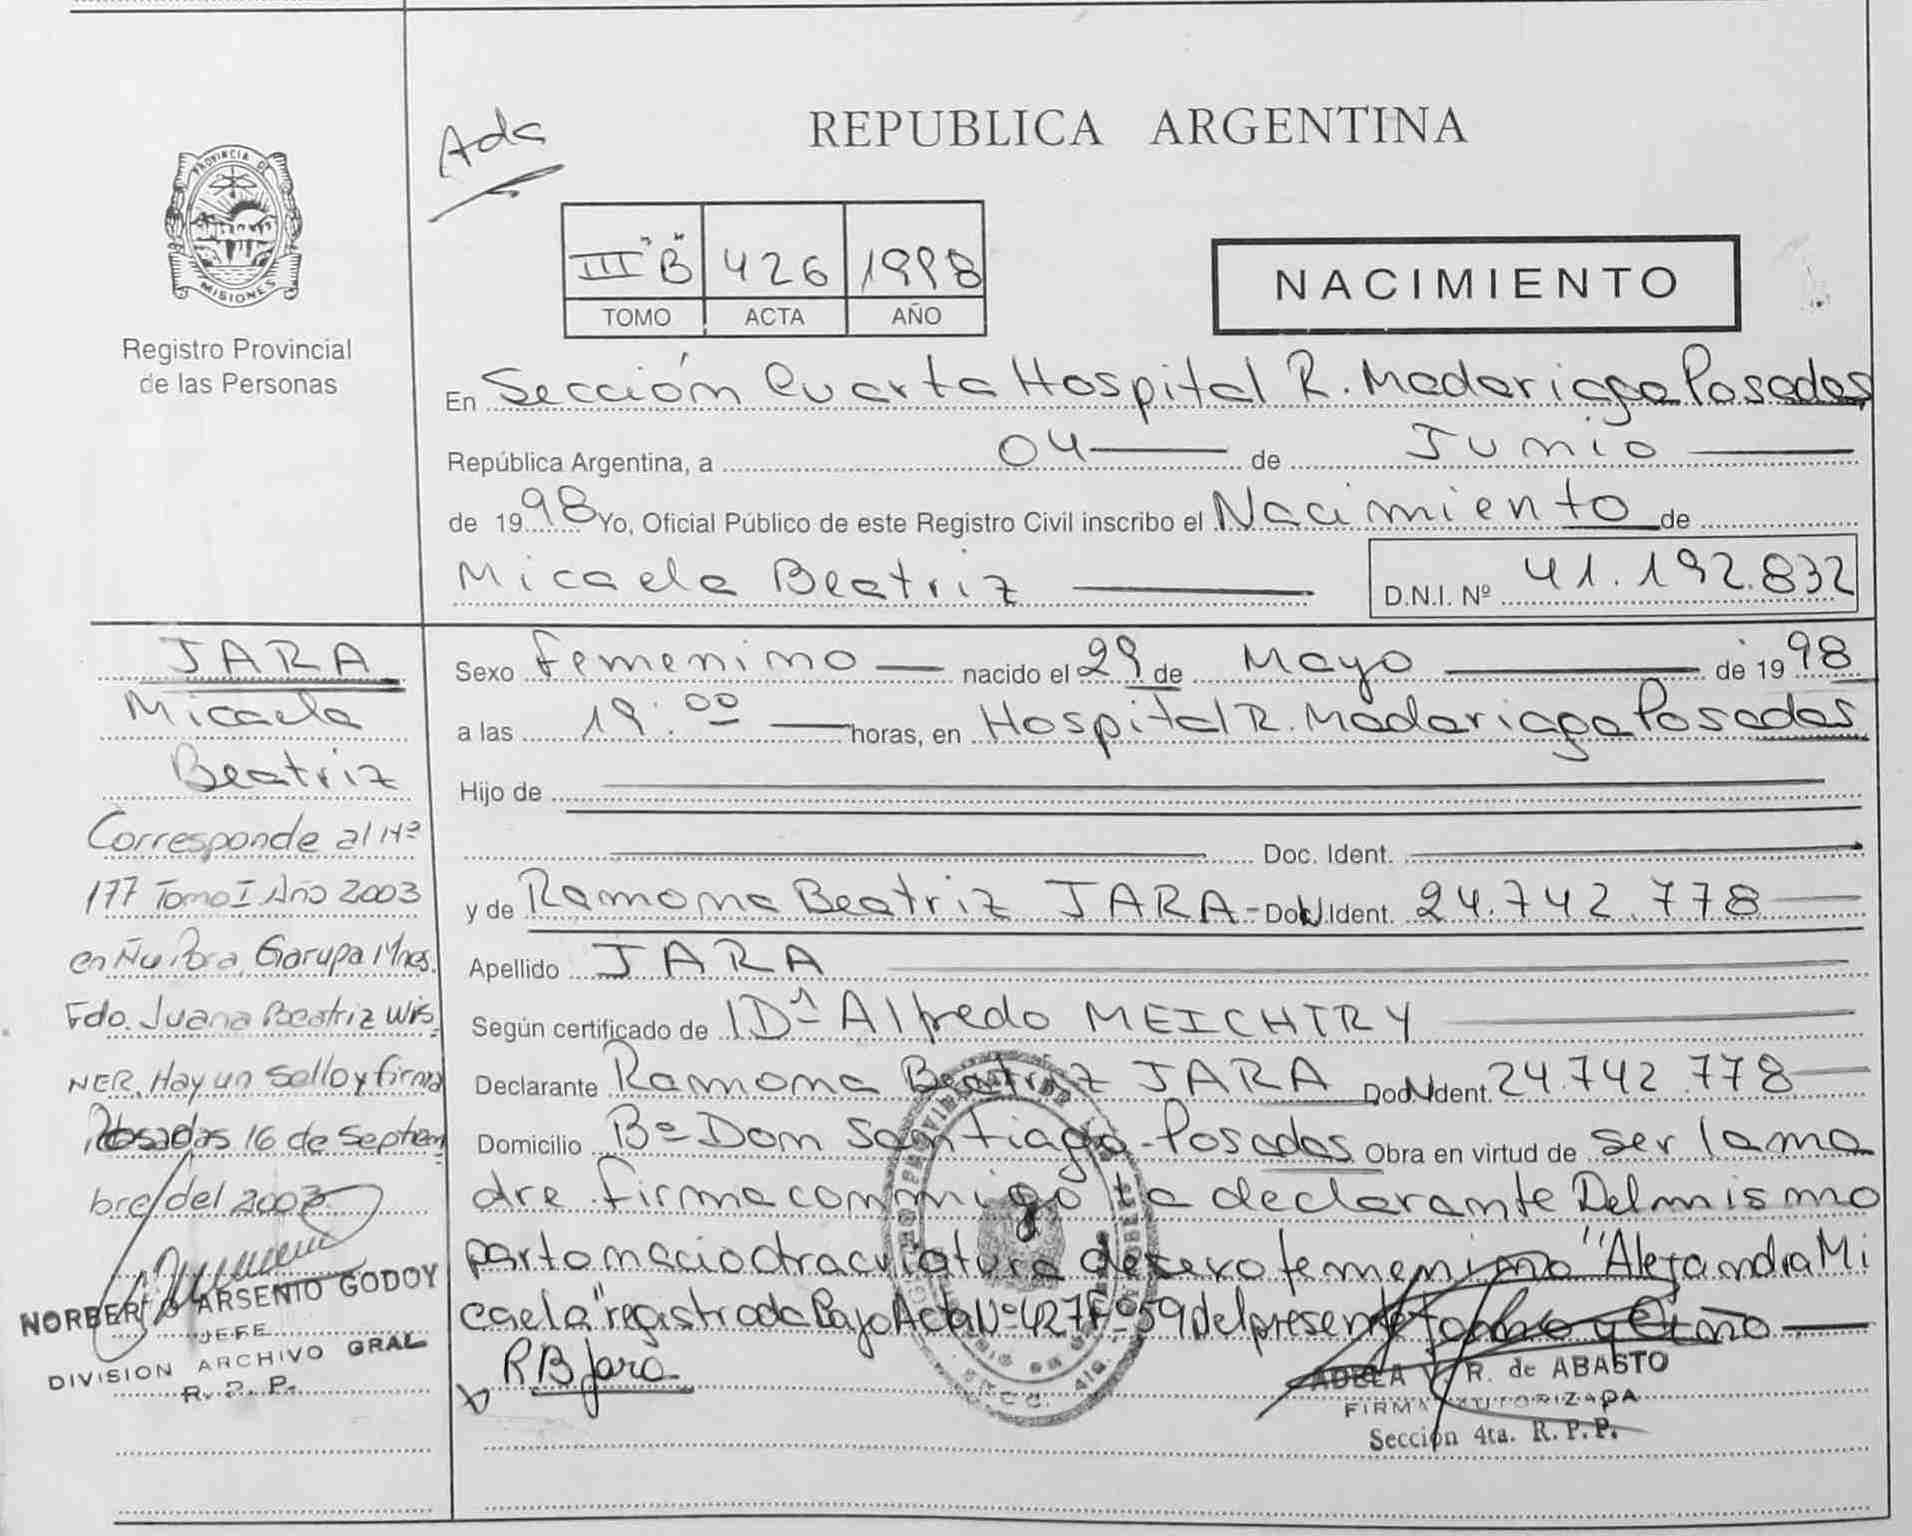 Ada
REPUBLICA ARGENTINA
PROVINCIA DE
MISIONES
Registro Provincial
de las Personas
III "B" 426 1998
TOMO ACTA AÑO
NACIMIENTO
En Sección Cuarta Hospital R. Madariaga Posadas
República Argentina, a 04 de Junio
de 1998 Yo, Oficial Público de este Registro Civil inscribo el Nacimiento de
Micaela Beatriz D.N.I. Nº 41.192.832
JARA
Micaela
Beatriz
Corresponde al Nº
177 Tomo I Año 2003
en Ñu Pora, Garupa Mnes.
Fdo. Juana Beatriz Wis
NER. Hay un Sello y firma
Posadas 16 de Septiem
bre del 2003
NORBERTO ARSENIO GODOY
JEFE
DIVISION ARCHIVO GRAL
R. P. P.
Sexo femenino nacido el 29 de Mayo de 1998
a las 19:00 horas, en Hospital R. Madariaga Posadas
Hijo de
Doc. Ident.
y de Ramona Beatriz JARA - Doc. Ident. 24.742.778
Apellido JARA
Según certificado de Alfredo MEICHTRY
Declarante Ramona Beatriz JARA Doc. Ident. 24.742.778
Domicilio Bº Don Santiago - Posadas Obra en virtud de ser la ma
dre firma conmigo la declarante Del mismo
parto nacio otra criatura de sexo femenino "Alejandra Mi
caela" registrada Bajo Acta Nº 427 Fº 59 del presente tomo y año
R B Jara
ADELA V. R. de ABASTO
FIRMA AUTORIZADA
Sección 4ta. R. P. P.